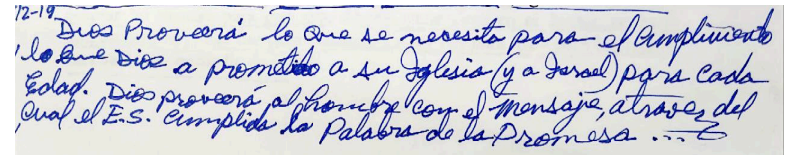 12-19
Dios Proveerá lo que se necesita para el Cumplimiento
lo que Dios a prometido a su Iglesia (y a Israel) para cada
Edad. Dios proveerá, al hombre con el Mensaje, atraves del
Cual el E.S. Cumplida la Palabra de la Promesa ...